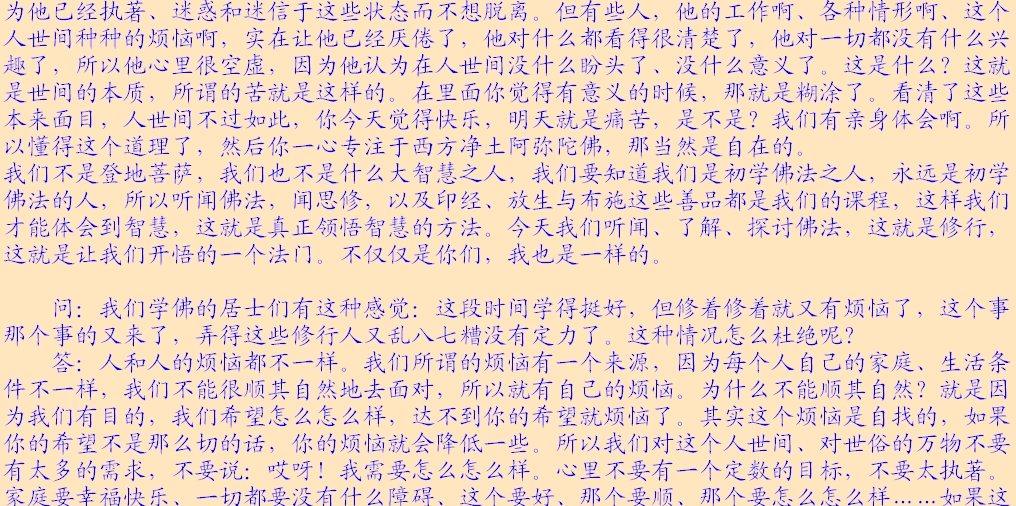 为他已经执著、迷惑和迷信于这些状态而不想脱离。但有些人，他的工作啊、各种情形啊、这个
人世间种种的烦恼啊，实在让他已经厌倦了，他对什么都看得很清楚了，他对一切都没有什么兴
趣了，所以他心里很空虚，因为他认为在人世间没什么盼头了、没什么意义了。这是什么？这就
是世间的本质，所谓的苦就是这样的。在里面你觉得有意义的时候，那就是糊涂了。看清了这些
本来面目，人世间不过如此，你今天觉得快乐，明天就是痛苦，是不是？我们有亲身体会啊。所
以懂得这个道理了，然后你一心专注于西方净土阿弥陀佛，那当然是自在的。
我们不是登地菩萨，我们也不是什么大智慧之人，我们要知道我们是初学佛法之人，永远是初学
佛法的人，所以听闻佛法，闻思修，以及印经、放生与布施这些善品都是我们的课程，这样我们
才能体会到智慧，这就是真正领悟智慧的方法。今天我们听闻、了解、探讨佛法，这就是修行，
这就是让我们开悟的一个法门。不仅仅是你们，我也是一样的。
问：我们学佛的居士们有这种感觉：这段时间学得挺好，但修着修着就又有烦恼了，这个事
那个事的又来了，弄得这些修行人又乱八七糟没有定力了。这种情况怎么杜绝呢？
答：人和人的烦恼都不一样。我们所谓的烦恼有一个来源，因为每个人自己的家庭、生活条
件不一样，我们不能很顺其自然地去面对，所以就有自己的烦恼。为什么不能顺其自然？就是因
为我们有目的，我们希望怎么怎么样，达不到你的希望就烦恼了。其实这个烦恼是自找的，如果
你的希望不是那么切的话，你的烦恼就会降低一些。所以我们对这个人世间、对世俗的万物不要
有太多的需求，不要说：哎呀！我需要怎么怎么样。心里不要有一个定数的目标，不要太执著。
家庭要幸福快乐、一切都要没有什么障碍、这个要好、那个要顺、那个要怎么怎么样……如果这